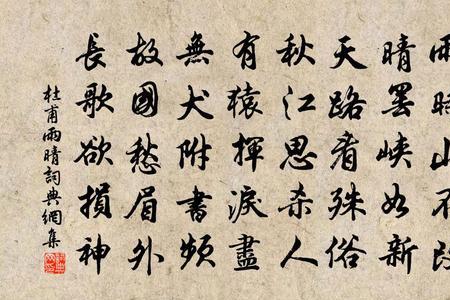 雨時山不改
晴罷峽如新
天路看殊俗
秋江思殺人
有猿揮淚盡
無犬附書頻
故國愁眉外
長歌欲損神
杜甫雨晴詞典網集